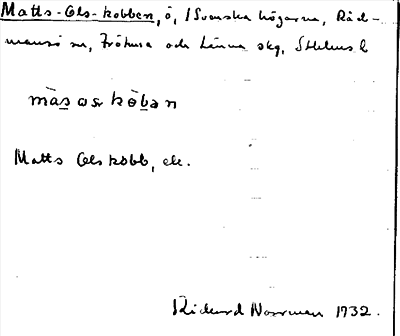 Matts-Ols-kobben, ö, i Svenska högarna, Råd-
mansö sn, Fröhusa och Länna skg, Sthlms l.
màsos kòban
Matts Olskobb, ek.
Rickard Norrman 1932.